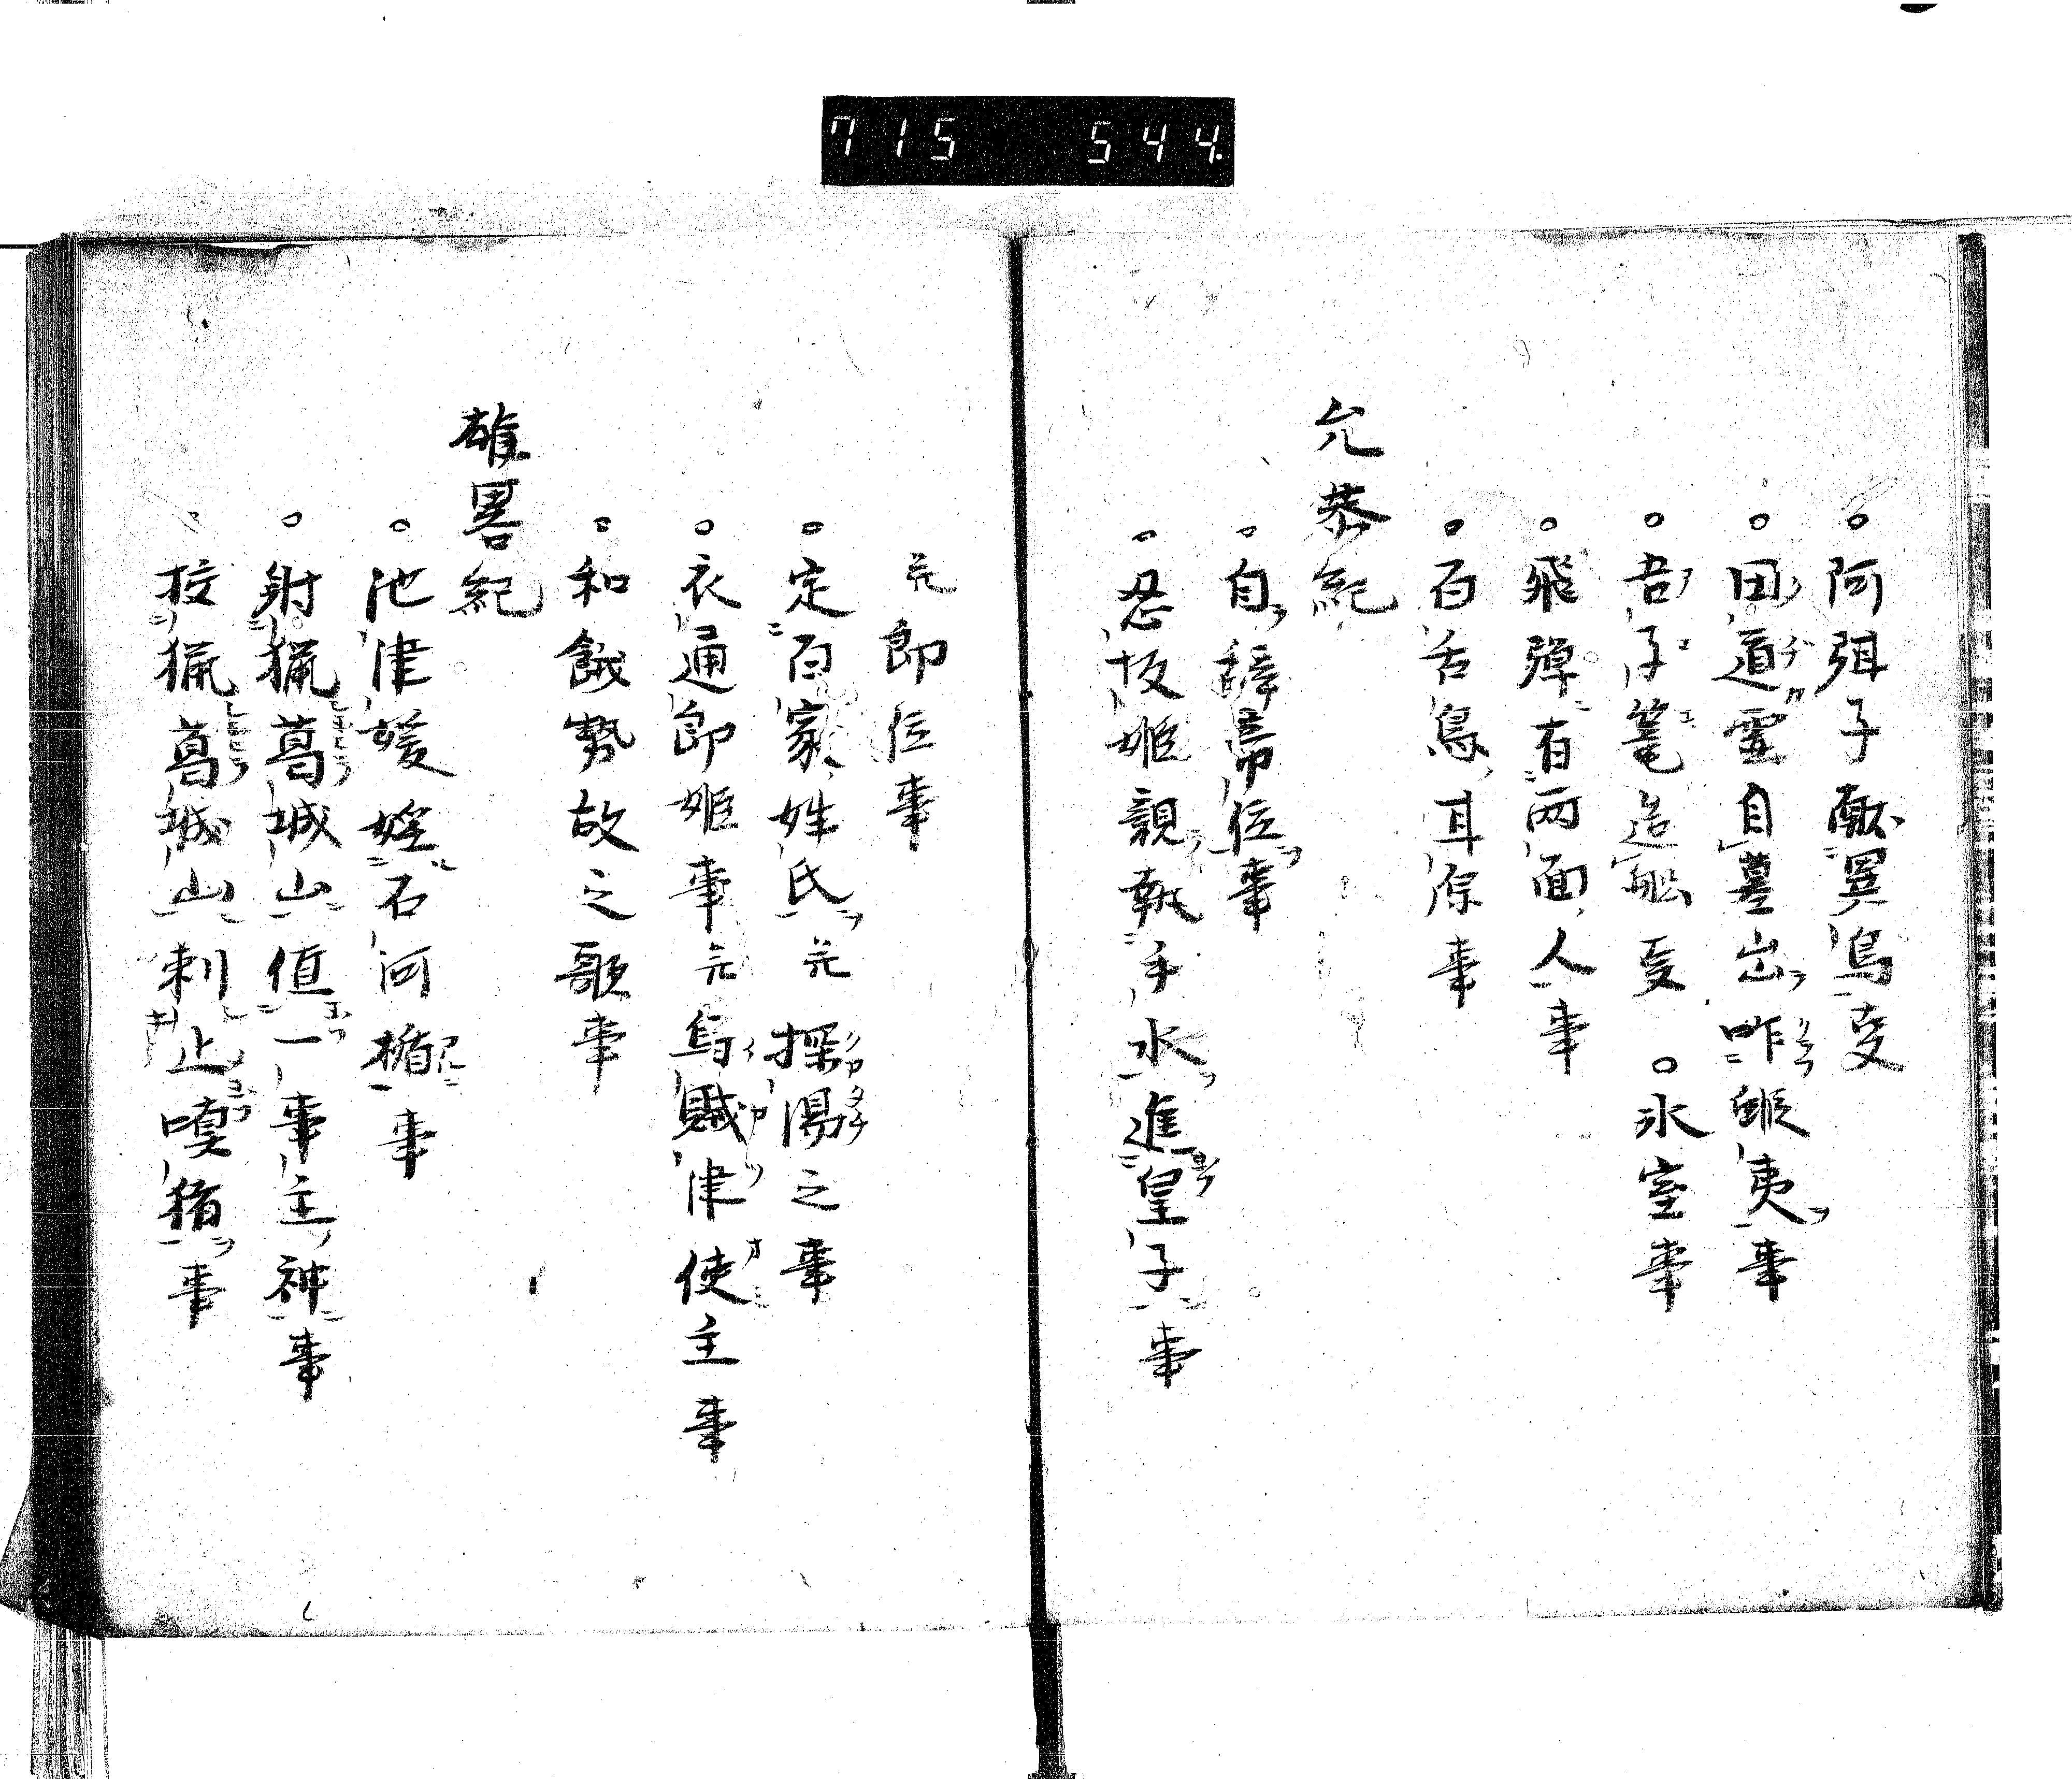 715 544
。阿弭子献異鳥事
。田道霊自墓出咋蝦夷事
。吾子篭造船事 。氷室事
。飛騨有両面人事
。百舌鳥耳原事
允恭紀
。自辞帝位事
。忍坂姫親執手水進皇子事
元即位事
。定百家姓氏 元探湯之事
。衣通郎姫事 元烏賊津使主事
。和餓勢故之歌事
雄畧紀
。池津媛婬石河楯事
。射猟葛城山値一事主神事
。挍猟葛城山刺止嗔猪事